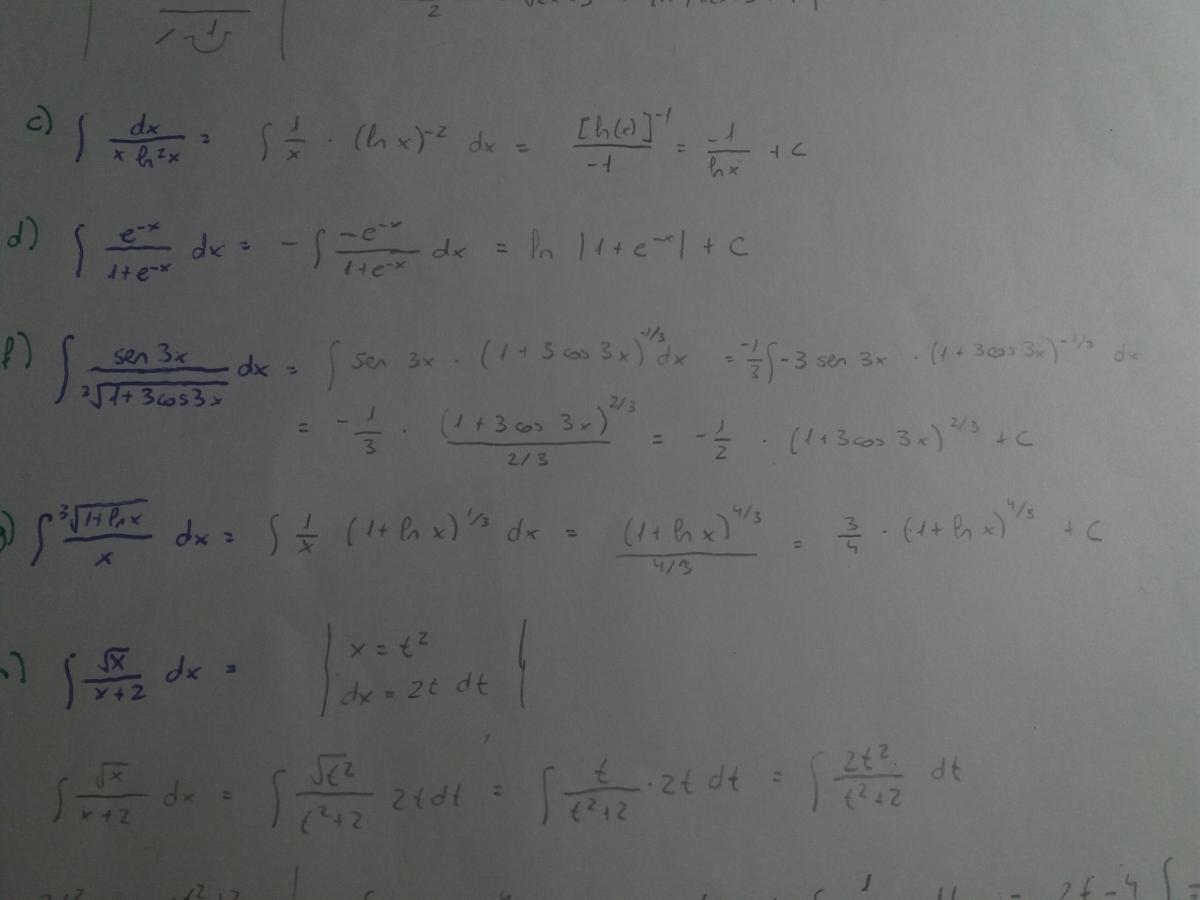 2
1
c) ∫ dx / (x ln²x) = ∫ 1/x · (ln x)⁻² dx = [ln(x)]⁻¹ / -1 = -1 / ln x + C
d) ∫ e⁻ˣ / (1+e⁻ˣ) dx = - ∫ -e⁻ˣ / (1+e⁻ˣ) dx = ln |1+e⁻ˣ| + C
f) ∫ sen 3x / ³√(1+3cos3x) dx = ∫ sen 3x · (1+3 cos 3x)^(-1/3) dx = -1/3 ∫ -3 sen 3x · (1+3cos 3x)^(-1/3) dx
= - 1/3 · (1+3 cos 3x)^(2/3) / (2/3) = - 1/2 · (1+3cos 3x)^(2/3) + C
∫ ³√(1+ln x) / x dx = ∫ 1/x (1+ln x)^(1/3) dx = (1+ln x)^(4/3) / (4/3) = 3/4 · (1+ln x)^(4/3) + C
∫ √x / (x+2) dx = | x = t²
dx = 2t dt |
∫ √x / (x+2) dx = ∫ √t² / (t²+2) 2t dt = ∫ t / (t²+2) · 2t dt = ∫ 2t² / (t²+2) dt